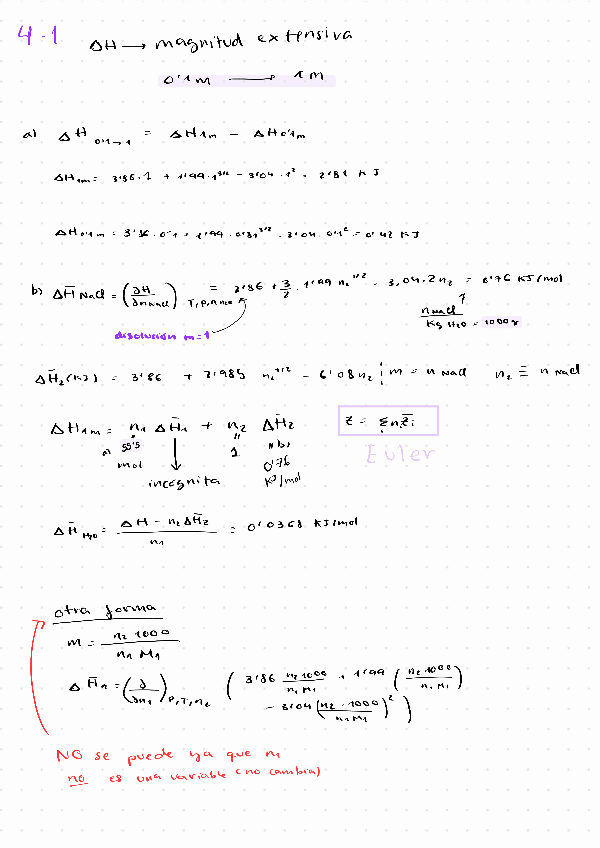 4.1 ΔH → magnitud extensiva
0'1m → 1m
a) ΔH 0'1→1 = ΔH1m - ΔH0'1m
ΔH1m = 3'86·1 + 1'99·1^3/2 - 3'04·1^2 = 2'81 KJ
ΔH0'1m = 3'86·0'1 + 1'99·0'1^3/2 - 3'04·0'1^2 = 0'42 KJ
b) ΔH̄ NaCl = (∂H/∂n NaCl) T,P,n H2O = 3'86 + 3/2 · 1'99 n2^1/2 - 3,04·2n2 = 0'76 KJ/mol
n NaCl / Kg H2O = 1000g
disolución m=1
ΔH̄2 (KJ) = 3'86 + 2'985 n2^1/2 - 6'08n2 ; m = n NaCl n2 ≡ n NaCl
ΔH1m = n1 ΔH̄1 + n2 ΔH̄2 Z = Σ ni z̄i
55'5 1 0'76
mol KJ/mol Euler
incógnita
ΔH̄ H2O = (ΔH - n2ΔH̄2) / n1 = 0'0368 KJ/mol
otra forma
m = n2 1000 / n1 M1
ΔH̄1 = (∂/∂n1) P,T,n2 (3'86 n2 1000/n1 M1 + 1'99 (n2 1000/n1 M1)
- 3'04 (n2 · 1000/n1 M1)^2)
NO se puede ya que n1
no es una variable (no cambia)